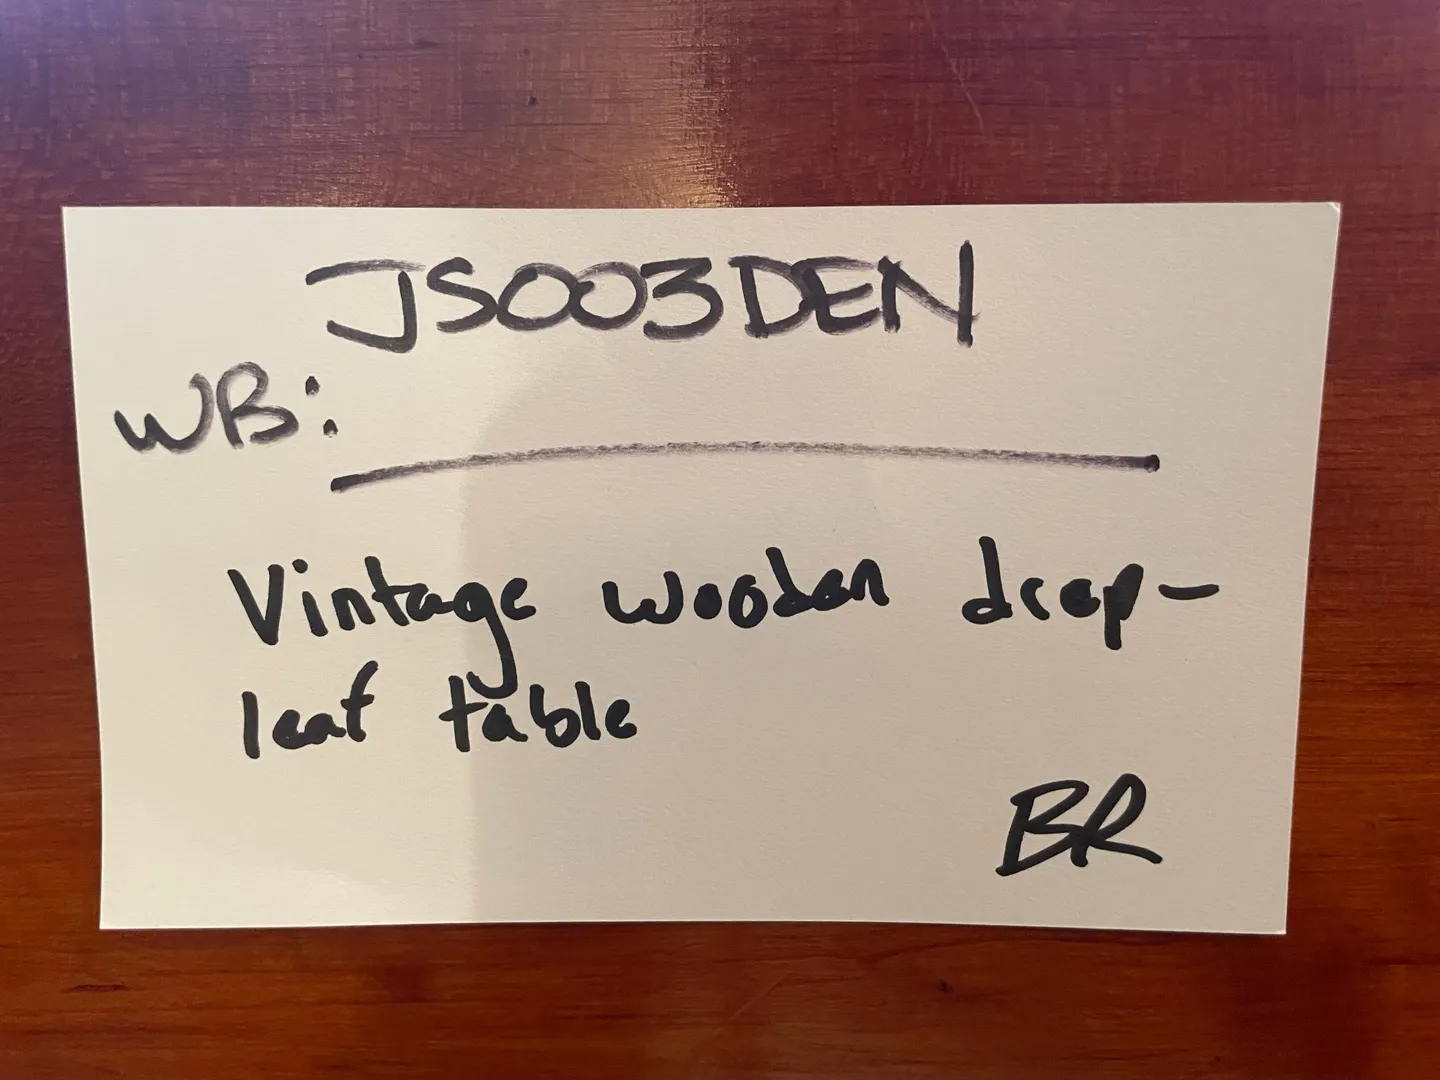 JS003DEN
WB:
Vintage wooden drop-
leaf table
BR